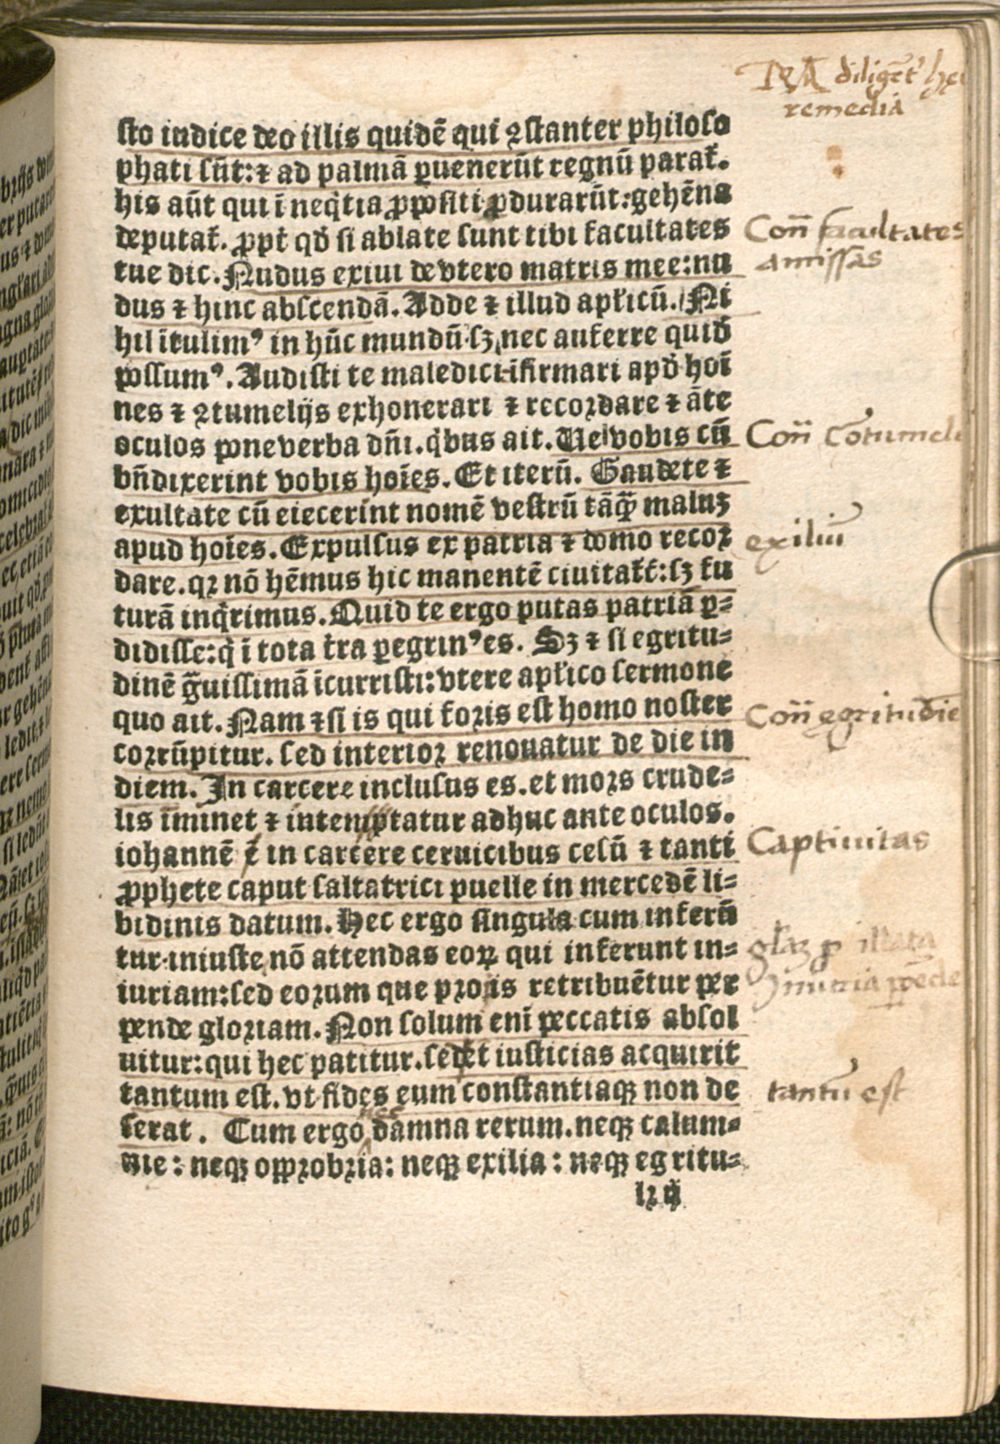 sto iudice deo illis quidē qui ꝯstanter philoso
phati sūt: ⁊ ad palmā ꝑuenerūt regnū parat̄.
his aūt qui ī neq̇tia ꝓpositi ꝑdurarūt: gehēna
deputat̄. ꝓpt̄ qd̄ si ablate sunt tibi facultates
tue dic. Nudus exiui de vtero matris mee: nu
dus ⁊ hinc abscendā. Adde ⁊ illud apl̄icū. Ni
hil ītulimꝰ in hūc mundū sꝫ nec auferre quid
possumꝰ. Audisti te maledici ifirmari apd̄ hoī
nes ⁊ ꝯtumelijs exhonerari ⁊ recordare ⁊ āte
oculos pone verba dn̄i. q̇bus ait. Ue vobis cū
bn̄dixerint vobis hoīes. Et iterū. Gaudete ⁊
exultate cū eiecerint nomē vestrū tāꝙ̄ maluꝫ
apud hoīes. Expulsus ex patria ⁊ domo recor
dare. qꝛ nō hēmus hic manentē ciuitat̄ē: sꝫ fu
turā inq̇rimus. Quid te ergo putas patriā ꝑ=
didisse: q̇ ī tota t̄ra ꝑegrinꝰ es. Sꝫ ⁊ si egritu=
dinē ḡuissimā īcurristi: vtere apl̄ico sermone
quo ait. Nam ⁊ si is qui foris est homo noster
corrūpitur. sed interior renouatur de die in
diem. In carcere inclusus es. et mors crude=
lis īminet ⁊ intemptatur adhuc ante oculos.
iohannē ī in carcere ceruicibus cesū ⁊ tanti
ꝓphete caput saltatrici puelle in mercedē li=
bidinis datum. Hec ergo singula cum inferū
tur iniuste nō attendas eoꝝ qui inferunt in=
iuriam: sed eorum que pro ijs retribuētur per
pende gloriam. Non solum enī peccatis absol
uitur: qui hec patitur. sed et iusticias acquirit
tantum est. vt fides eum constantiaqꝫ non de
serat. Cum ergo nec dāmna rerum. neqꝫ calum=
nie: neqꝫ opprobria: neqꝫ exilia: neqꝫ egritu=
diligēt
remedia
Con̄ facultates
amissas
Con̄
exiliū
Con̄
Captiuitas
illata
tantū est